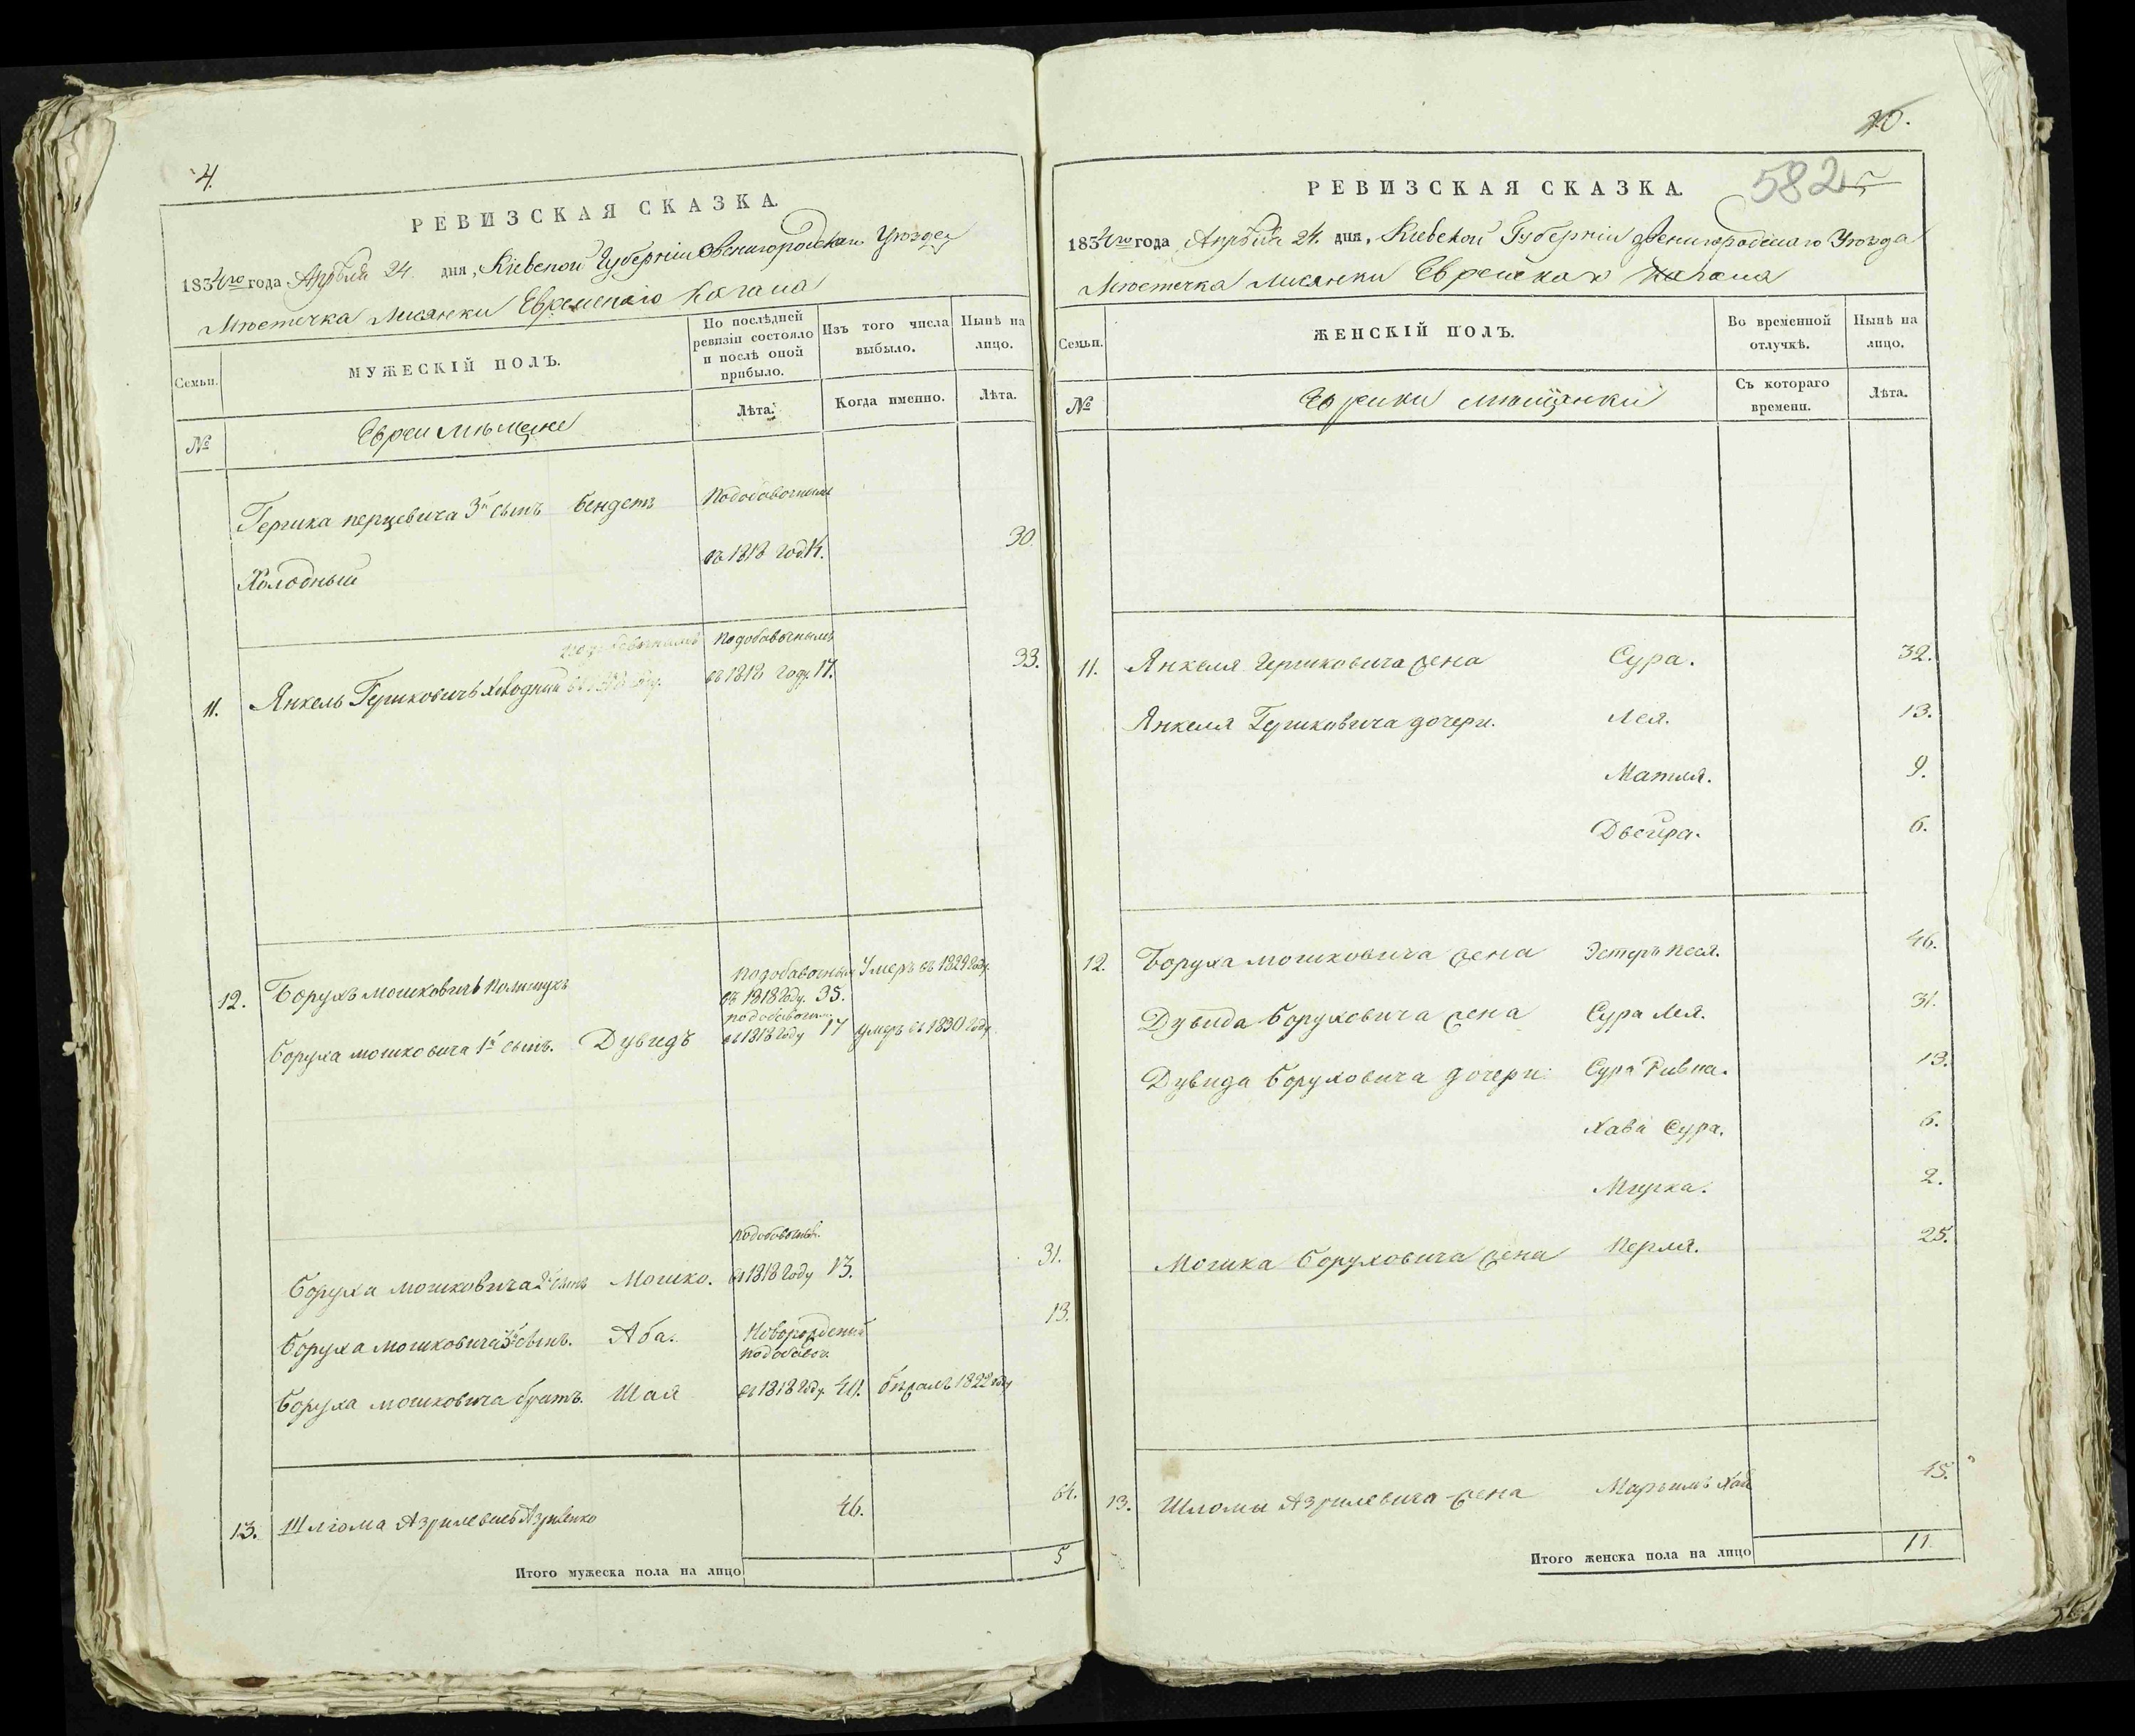 4.
РЕВИЗСКАЯ СКАЗКА.
1834го года Апреля 24. дня, Киевской Губернии Звенигородскаго Уѣзда
Мѣстечка Лисянки Еврейскаго Кагала
Семьи.
МУЖЕСКІЙ ПОЛЪ.
По послѣдней ревизіи состояло и послѣ оной прибыло.
Изъ того числа выбыло.
Нынѣ на лицо.
№
Евреи мѣщане
Лѣта.
Когда именно.
Лѣта.
Гершка перцевича 3й сынъ Бендетъ
Подобавочнымъ
Холодный
въ 1818 год. 14.
30.
Подобавочнымъ
11. Янкель Гершковичъ Холодный
въ 1818 году. 17.
33.
12. Борухъ мошковичъ Полищукъ
Подобавочным
въ 1818 году. 35.
Умеръ въ 1829 году.
Боруха мошковича 1й сынъ. Дувидъ
подобавочн.
въ 1818 году 17
умеръ въ 1830 году
Подобавочнъ.
Боруха мошковича 2й сынъ Мошко.
въ 1818 году 13.
31.
Боруха мошковича 3й сынъ. Аба.
Новорожденый
13.
Подобавоч.
Боруха мошковича братъ. Шая
въ 1818 году. 40.
бѣжалъ 1822 году
13. Шліома Азрилевичъ Азриленко
46.
64.
Итого мужеска пола на лицо
5
20.
582
РЕВИЗСКАЯ СКАЗКА.
1834го года Апрѣля 24. дня, Киевской Губерніи Звенигородскаго Уѣзда
Мѣстечка Лисянки Еврейскаго Кагала
Семьи.
ЖЕНСКІЙ ПОЛЪ.
Во временной отлучкѣ.
Нынѣ на лицо.
№
Еврейки мѣщанки
Съ котораго времени.
Лѣта.
11. Янкеля Гершковича жена Сура. 32.
Янкеля Гершковича дочери. Лея. 13.
Матля. 9.
Двейра. 6.
12. Боруха мошковича жена Эстеръ Песя. 46.
Дувида Боруховича жена Сура Лея. 31.
Дувида Боруховича дочери: Сура Ривка. 13.
Хава Сура. 6.
Мирка. 2.
Мошка Боруховича жена Перля. 25.
13. Шломы Азрилевича жена Марьимъ Хая 45.
Итого женска пола на лицо
11.